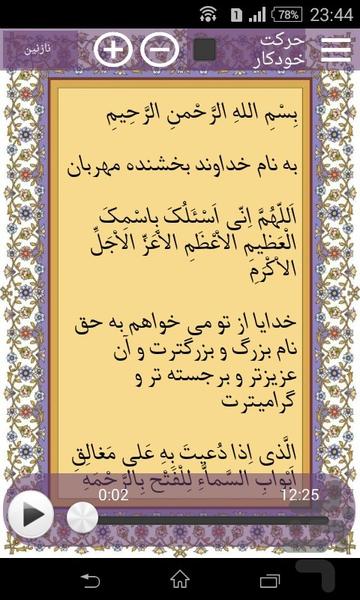 78% 23:44
حرکت
خودکار
نازنین
بِسْمِ اللهِ الرَّحْمنِ الرَّحِیمِ
به نام خداوند بخشنده مهربان
اَللّهُمَّ اِنّی اَسْئَلُکَ بِاسْمِکَ
الْعَظیمِ الاْعْظَمِ الاْعَزِّ الاْجَلِّ
الاْکْرَمِ
خدایا از تو می خواهم به حق
نام بزرگ و بزرگترت و آن
عزیزتر و برجسته تر و
گرامیترت
الَّذی اِذا دُعیتَ بِهِ عَلی مَغالِقِ
اَبْوابِ السَّماَّءِ لِلْفَتْحِ بِالرَّحْمَهِ
0:02 12:25